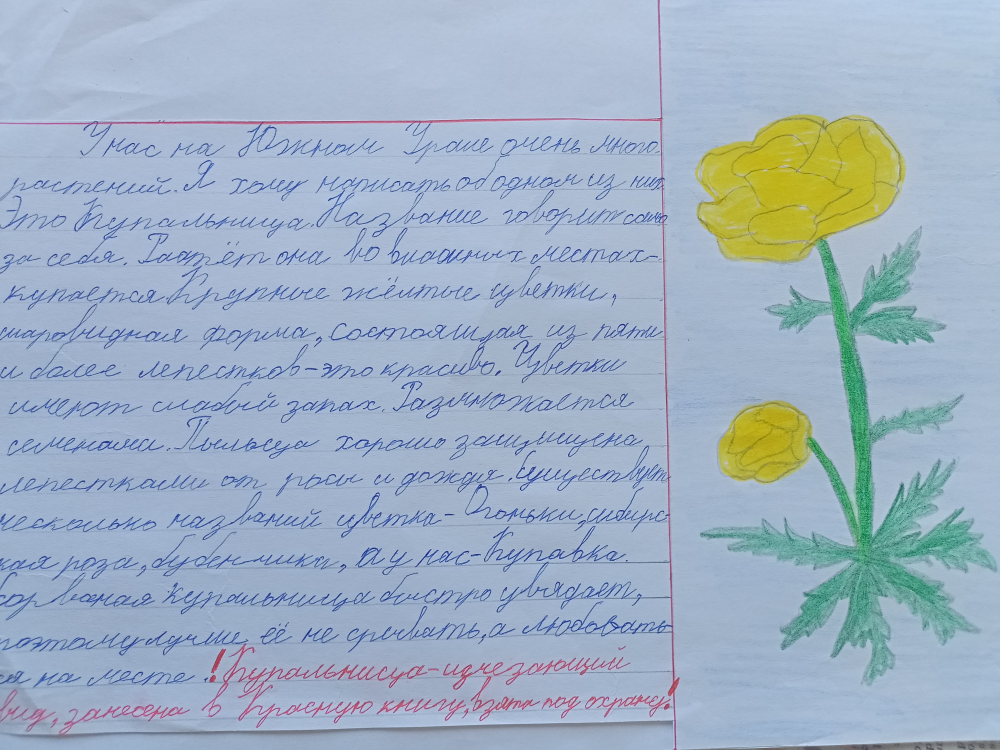 У нас на Южном Урале очень много
растений. Я хочу написать об одном из них.
Это Купальница. Название говорит само
за себя. Растёт она во влажных местах-
купается Крупные жёлтые цветки,
шаровидная форма, состоящая из пяти
и более лепестков-это красиво. Цветки
имеют слабый запах. Размножается
семенами. Пыльца хорошо защищена
лепестками от росы и дождя. Существует
несколько названий цветка-Огоньки, сибирс-
кая роза, бубенчики, а у нас-Купавка.
Сорваная Купальница быстро увядает,
поэтому лучше её не срывать, а любовать-
ся на месте. !Купальница-изчезающий
вид, занесена в Красную книгу, взята под охрану!